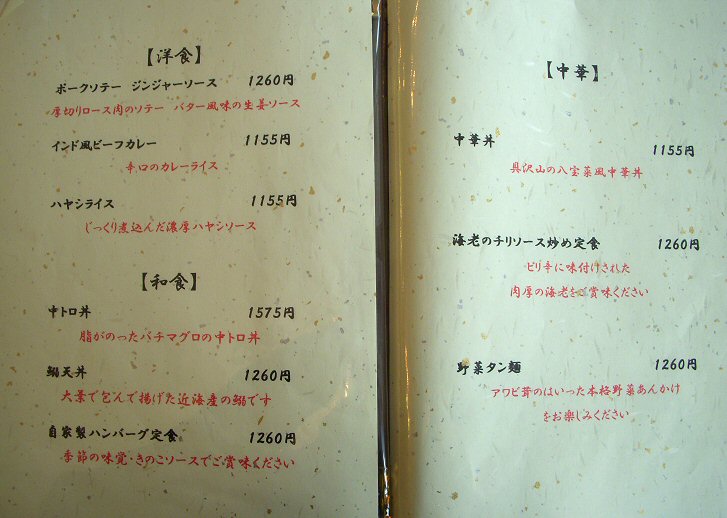 【洋食】
ポークソテー ジンジャーソース 1260円
厚切りロース肉のソテー バター風味の生姜ソース
インド風ビーフカレー 1155円
辛口のカレーライス
ハヤシライス 1155円
じっくり煮込んだ濃厚ハヤシソース
【和食】
中トロ丼 1575円
脂がのったバチマグロの中トロ丼
鰯天丼 1260円
大葉で包んで揚げた近海産の鰯です
自家製ハンバーグ定食 1260円
季節の味覚・きのこソースでご賞味ください
【中華】
中華丼 1155円
具沢山の八宝菜風中華丼
海老のチリソース炒め定食 1260円
ピリ辛に味付けされた
肉厚の海老をご賞味ください
野菜タン麺 1260円
アワビ茸のはいった本格野菜あんかけ
をお楽しみください